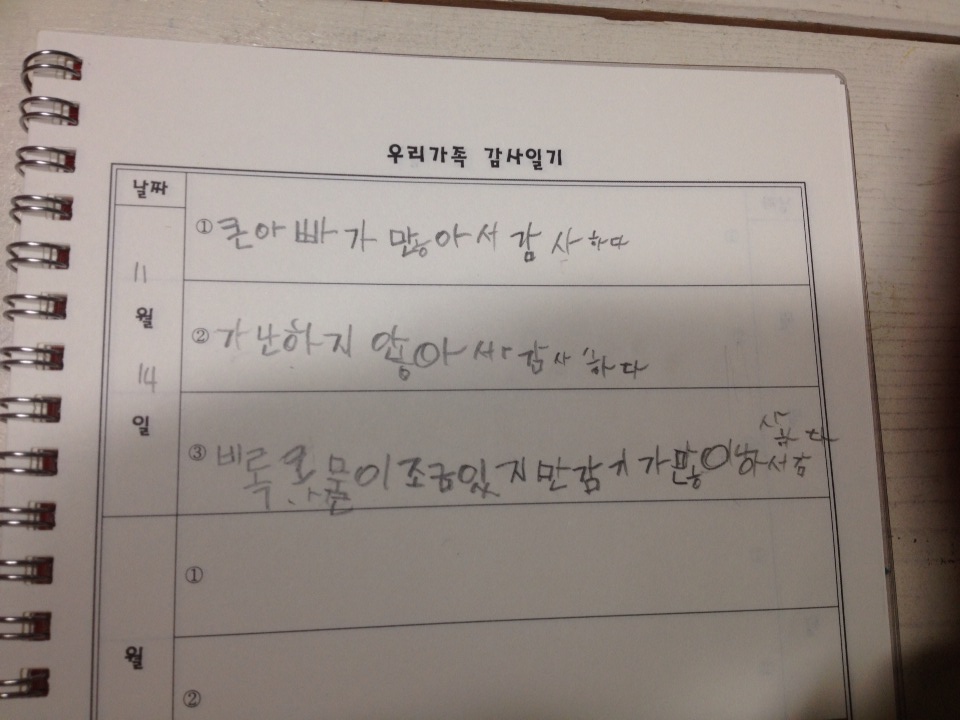 우리가족 감사일기
날짜
11
월
14
일
① 큰아빠가 많아서 감사하다
② 가난하지 않아서 감사하다
③ 비록 이 조금있지만 감기가
월
①
②